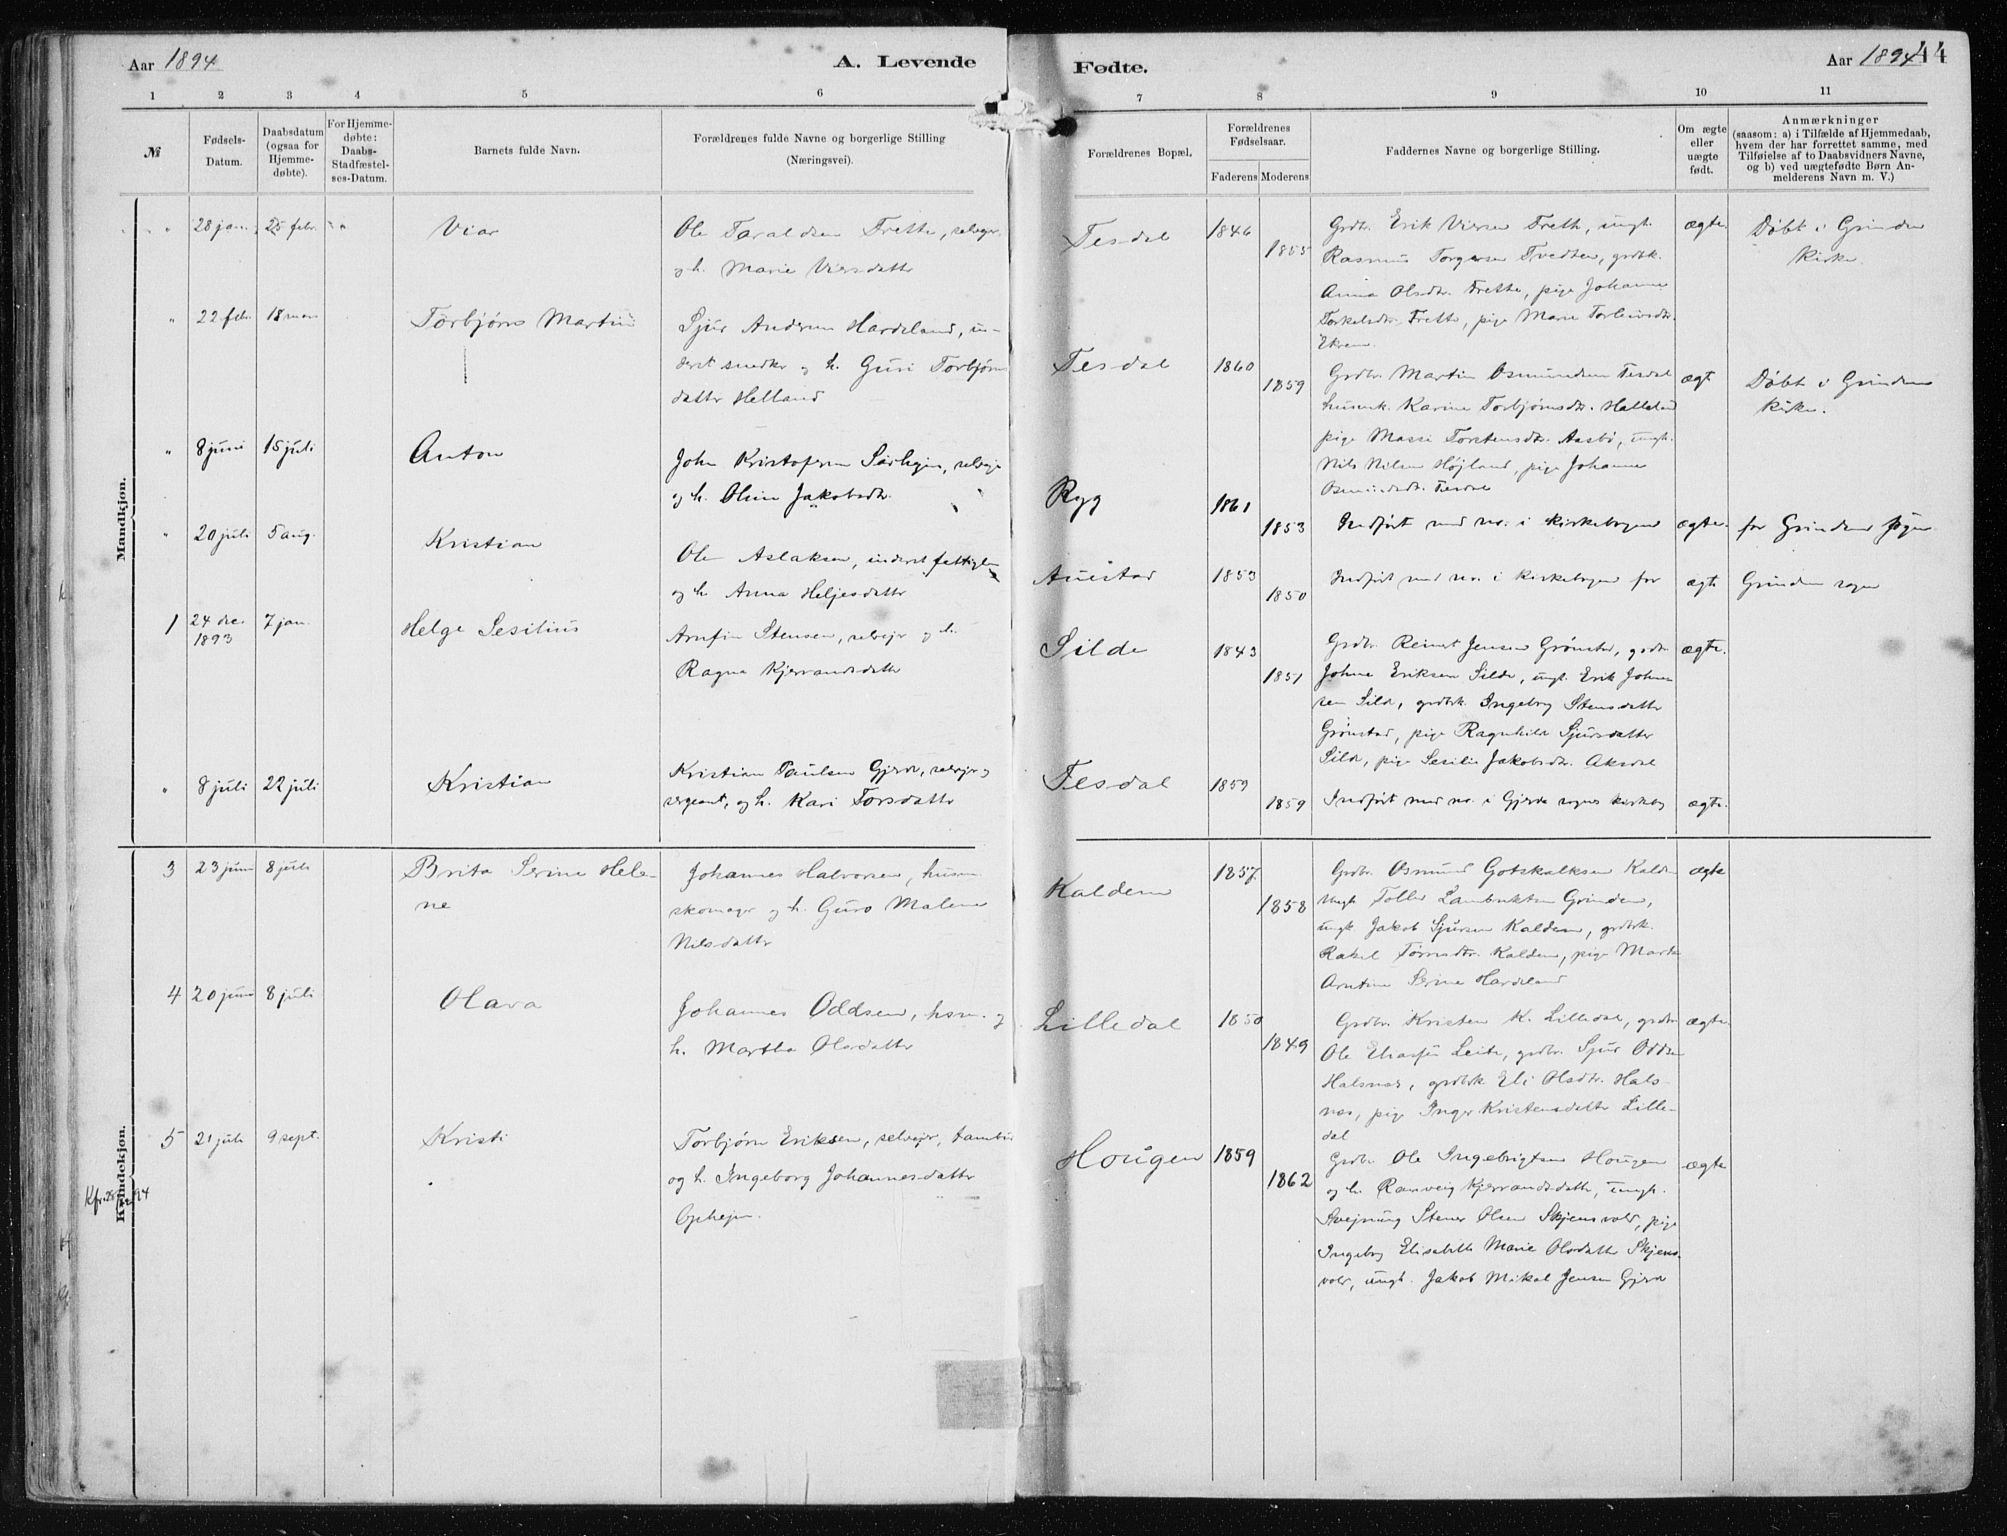 Aar 1894
A. Levende
Fødte.
Aar 1894
44
1 2 3 4 5 6 7 8 9 10 11
№
Fødsels-
Datum.
Daabsdatum
(ogsaa for
Hjemme-
døbte).
For Hjemme-
døbte:
Daabs-
Stadfæstel-
ses-Datum.
Barnets fulde Navn.
Forældrenes fulde Navne og borgerlige Stilling
(Næringsvei).
Forældrenes Bopæl.
Forældrenes
Fødselsaar.
Faderens Moderens
Faddernes Navne og borgerlige Stilling.
Om ægte
eller
uægte
født.
Anmærkninger
(saasom: a) i Tilfælde af Hjemmedaab,
hvem der har forrettet samme, med
Tilføielse af to Daabsvidners Navne,
og b) ved uægtefødte Børn An-
melderens Navn m. V.)
Mandkjøn.
" 28 jan. 25 febr.
Viar
Ole Taraldsen Frette, selveger,
og h. Marie Viersdatter
Tesdal
1846
1855
Grdbr. Erik Viersen Frette, ungk.
Rasmus Torgersen Tvedten, grdbk.
Anna Olsdtr. Frette, pige Johanne
Torkelsdtr. Frette, pige Marie Torleivsdtr.
Ekren.
ægte.
Døbt i Grinden
kirke.
" 22 feb. 18 mars
Torbjørn Martin
Sjur Andersen Hardeland, in-
derst snedker og h. Guri Torbjørns
datter Helland
Tesdal
1860
1859
Grdbr. Martin Osmundsen Tesdal
husmk. Karine Torbjørnsdtr.
pige Massi Torstensdtr. Aasbø, ungk.
Nils Nilsen Højland, pige Johanne
Osmundsdtr. Tesdal
ægte
Døbt i Grinden
kirke.
" 8 juni 15 juli
Anton
John Kristofersen
og h. Oline Jakobsdtr.
Ryg
1861
1853
Indført med no. i kirkebogen
ægte.
for Grinden sogn
" 20 juli 5 aug.
Kristian
Ole Aslaksen, inderst fattiglem
og h. Anna Heljesdatter
Auestad
1853
1850
Indført med no. i kirkebogen for
ægte
Grinden sogn
1 24 dec.
1893
7 jan.
Helge Sesilius
Arnfin Stensen, selvejer og h.
Ragna Kjerrandsdatter
Silde
1843
1851
Grdbr. Reinert Jensen Grønstad, grdbr
Johne Eriksen Silde, ungk. Erik Johne-
sen Silde, grdbrk. Ingeborg Stensdatter
Grønstad, pige Ragnhild Sjursdatter
Silde, pige Sesilie Jakobsdtr. Aksdal
ægte.
" 8 juli 22 juli
Kristian
Kristian Paulsen Gjerde, selvejer og
sergeant, og h. Kari Torsdatter
Tesdal
1859
1859
Indført med no. i Gjerde sogns kirkebog
ægte.
Kvindekjøn.
3 23 juni 8 juli
Brita Serine Hele-
ne
Johannes Halvorsen, husm.
skomager og h. Guro Malene
Nilsdatter
Kaldem
1857.
1858
Grdbr. Osmund Gotskalksen Kaldem
ungk. Tollef Lambrektsen Grinden,
ungk. Jakob Sjursen Kaldem, grdbrk.
Rakel Tørresdtr. Kaldem, pige Marta
Arntine Serine Hardeland
ægte
4 20 juni 8 juli
Olava
Johannes Oddsen, husm. og
h. Martha Olsdatter
Lilledal
1850
1849
Grdbr. Kristen K. Lilledal, grdbr
Ole Leite, grdbr. Sjur Oddsen
Halsnæs, grdbrk Eli Olsdtr. Hals-
næs, pige Inger Kristensdatter Lille-
dal
ægte.
5 21 juli 9 sept.
Kristi
Torbjørn Eriksen, selvejer, tambur
og h. Ingeborg Johannesdatter
Opheim.
Hougen
1859
1862
Grdbr. Ole Ingebrigtsen Hougen
og h. Ranveig Kjerrandsdatter, ungk.
Stener Olsen Skjensvold, pige
Ingeborg Elisabeth Marie Olsdatter Skjens-
vold, ungk. Jakob Mikal Jensen Gjerde
ægte